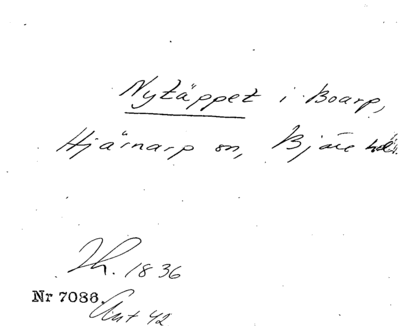 Nytäppet i Boarp,
Hjärnarp sn, Bjäre hd.
Th. 1836
Nr 7086.
Ant 42